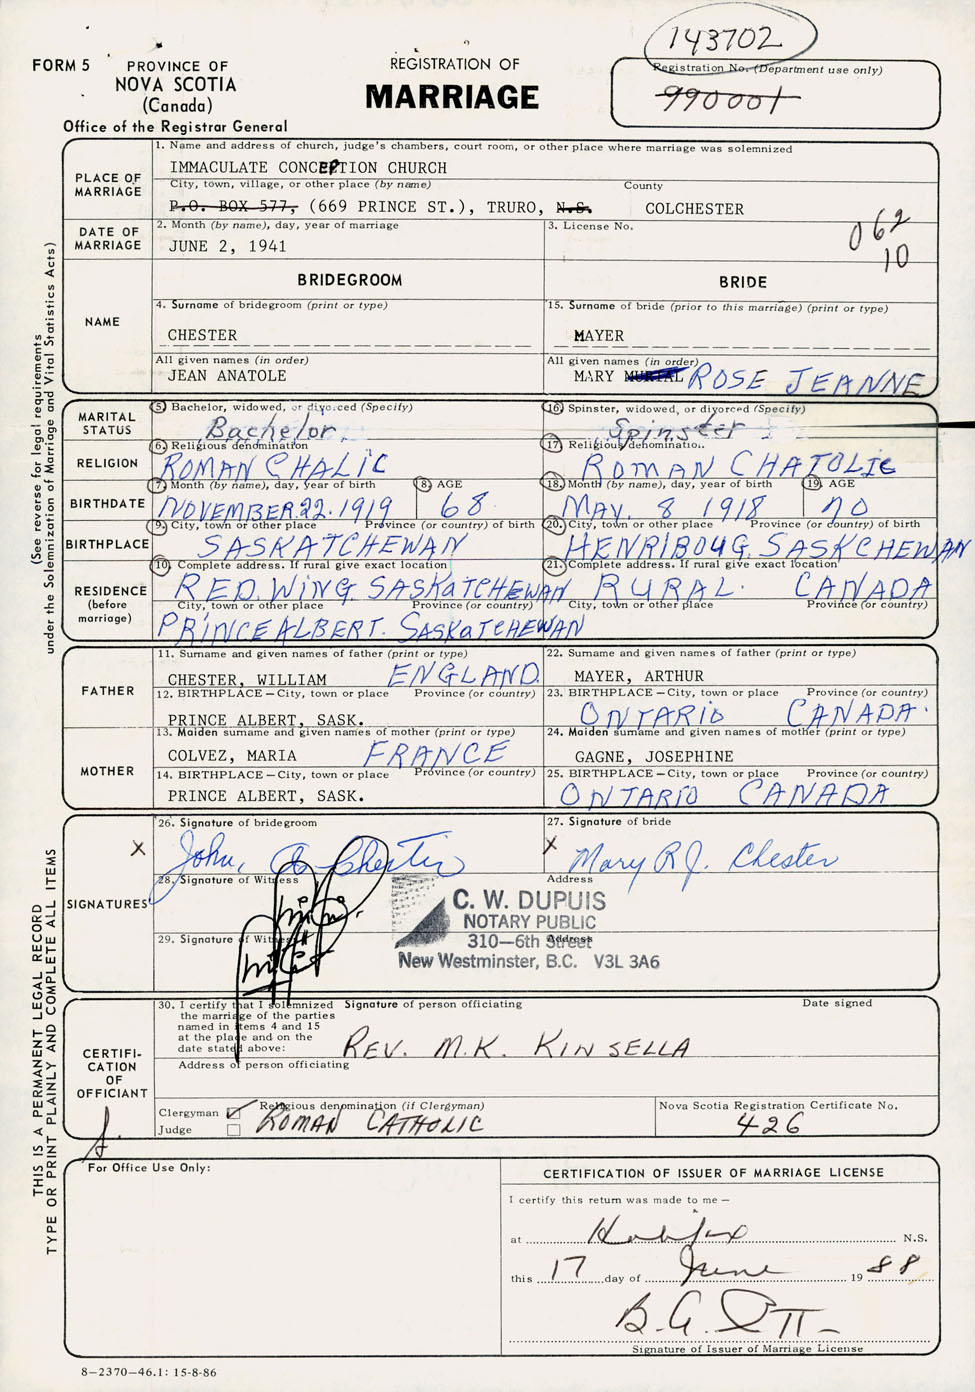 143702
FORM 5
PROVINCE OF
NOVA SCOTIA
(Canada)
Office of the Registrar General
REGISTRATION OF
MARRIAGE
Registration No. (Department use only)
990001
(See reverse for legal requirements
under the Solemnization of Marriage and Vital Statistics Acts)
PLACE OF MARRIAGE
1. Name and address of church, judge's chambers, court room, or other place where marriage was solemnized
IMMACULATE CONCEPTION CHURCH
City, town, village, or other place (by name) County
P.O. BOX 577, (669 PRINCE ST.), TRURO, N.S. COLCHESTER
DATE OF MARRIAGE
2. Month (by name), day, year of marriage 3. License No.
JUNE 2, 1941
062
10
BRIDEGROOM BRIDE
NAME
4. Surname of bridegroom (print or type) 15. Surname of bride (prior to this marriage) (print or type)
CHESTER MAYER
All given names (in order) All given names (in order)
JEAN ANATOLE MARY MURIAL ROSE JEANNE
MARITAL STATUS
5. Bachelor, widowed, or divorced (Specify) 16. Spinster, widowed, or divorced (Specify)
Bachelor. Spinster
RELIGION
6. Religious denomination 17. Religious denomination
ROMAN CHALIC ROMAN CHATOLIC
BIRTHDATE
7. Month (by name), day, year of birth 8. AGE 18. Month (by name), day, year of birth 19. AGE
NOVEMBER.22.1919 68 MAY. 8 1918 70
BIRTHPLACE
9. City, town or other place Province (or country) of birth 20. City, town or other place Province (or country) of birth
SASKATCHEWAN HENRIBOUG. SASKCHEWAN
RESIDENCE (before marriage)
10. Complete address. If rural give exact location 21. Complete address. If rural give exact location
RED. WING. SASKATCHEWAN RURAL. CANADA
City, town or other place Province (or country) City, town or other place Province (or country)
PRINCE ALBERT. SASKATCHEWAN
FATHER
11. Surname and given names of father (print or type) 22. Surname and given names of father (print or type)
CHESTER, WILLIAM ENGLAND. MAYER, ARTHUR
12. BIRTHPLACE – City, town or place Province (or country) 23. BIRTHPLACE – City, town or place Province (or country)
PRINCE ALBERT, SASK. ONTARIO CANADA.
MOTHER
13. Maiden surname and given names of mother (print or type) 24. Maiden surname and given names of mother (print or type)
COLVEZ, MARIA FRANCE GAGNE, JOSEPHINE
14. BIRTHPLACE – City, town or place Province (or country) 25. BIRTHPLACE – City, town or place Province (or country)
PRINCE ALBERT, SASK. ONTARIO CANADA
THIS IS A PERMANENT LEGAL RECORD
TYPE OR PRINT PLAINLY AND COMPLETE ALL ITEMS
SIGNATURES
26. Signature of bridegroom 27. Signature of bride
X John, A Chester X Mary R.J. Chester
28. Signature of Witness Address
C. W. DUPUIS
NOTARY PUBLIC
29. Signature of Witness Address
310—6th Street
New Westminster, B.C. V3L 3A6
CERTIFI-
CATION
OF
OFFICIANT
30. I certify that I solemnized the marriage of the parties named in items 4 and 15 at the place and on the date stated above:
Signature of person officiating Date signed
REV. M.K. KINSELLA
Address of person officiating
Clergyman ✓ Religious denomination (if Clergyman) Nova Scotia Registration Certificate No.
Judge ROMAN CATHOLIC 426
For Office Use Only:
CERTIFICATION OF ISSUER OF MARRIAGE LICENSE
I certify this return was made to me –
at Halifax N.S.
this 17 day of June 19 88
Signature of Issuer of Marriage License
8–2370–46.1: 15-8-86